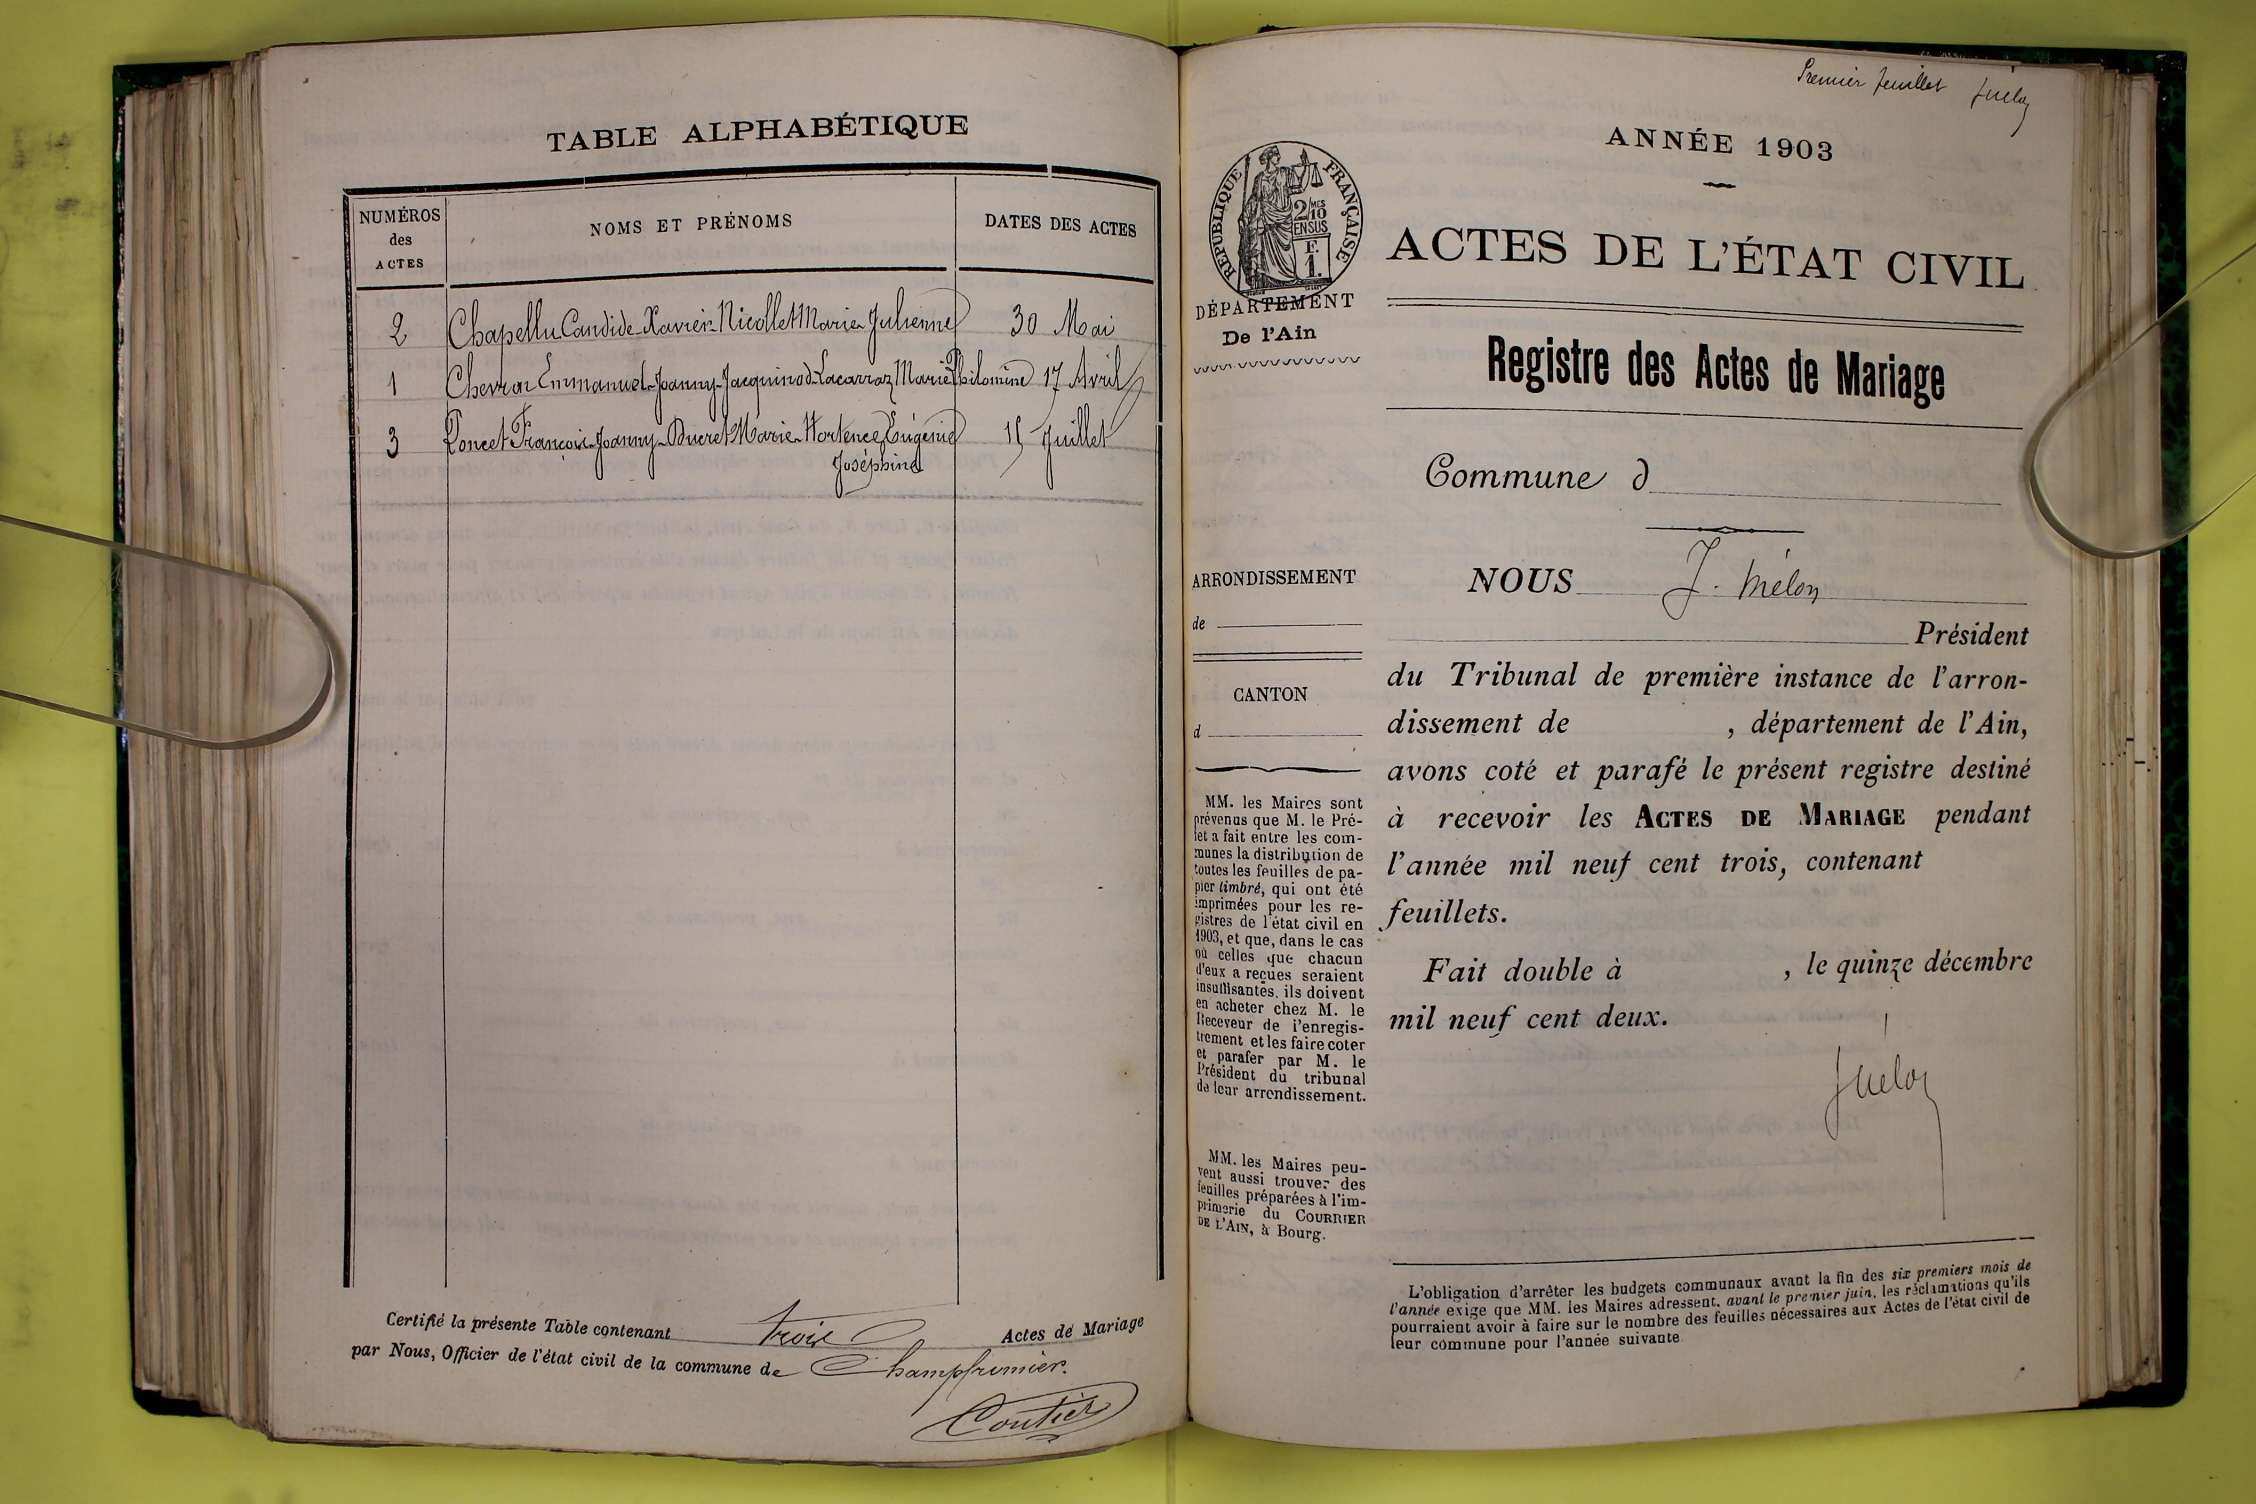 TABLE ALPHABÉTIQUE
NUMÉROS
des
ACTES
NOMS ET PRÉNOMS
DATES DES ACTES
2 Chapellu Candide Xavier Nicollet Marie Julienne 30 Mai
1 Chevron Emmanuel Joanny Jacquinod Lacarraz Marie Philomène 17 Avril
3 Poncet François Joanny Ducret Marie Hortence Eugénie 15 Juillet
Joséphine
Certifié la présente Table contenant trois Actes de Mariage
par Nous, Officier de l'état civil de la commune de Champfromier.
Coutier
Premier feuillet
ANNÉE 1903
RÉPUBLIQUE FRANÇAISE
2/10 MES
EN SUS
F.
1.
ACTES DE L'ÉTAT CIVIL
DÉPARTEMENT
De l'Ain
Registre des Actes de Mariage
Commune d
ARRONDISSEMENT
de
CANTON
d
MM. les Maires sont
prévenus que M. le Pré-
fet a fait entre les com-
munes la distribution de
toutes les feuilles de pa-
pier timbré, qui ont été
imprimées pour les re-
gistres de l'état civil en
1903, et que, dans le cas
où celles que chacun
d'eux a reçues seraient
insuffisantes, ils doivent
en acheter chez M. le
Receveur de l'enregis-
trement et les faire coter
et parafer par M. le
Président du tribunal
de leur arrondissement.
MM. les Maires peu-
vent aussi trouver des
feuilles préparées à l'im-
primerie du COURRIER
DE L'AIN, à Bourg.
NOUS J. Mélon
Président
du Tribunal de première instance de l'arron-
dissement de , département de l'Ain,
avons coté et parafé le présent registre destiné
à recevoir les ACTES DE MARIAGE pendant
l'année mil neuf cent trois, contenant
feuillets.
Fait double à , le quinze décembre
mil neuf cent deux.
L'obligation d'arrêter les budgets communaux avant la fin des six premiers mois de
l'année exige que MM. les Maires adressent, avant le premier juin, les réclamations qu'ils
pourraient avoir à faire sur le nombre des feuilles nécessaires aux Actes de l'état civil de
leur commune pour l'année suivante.